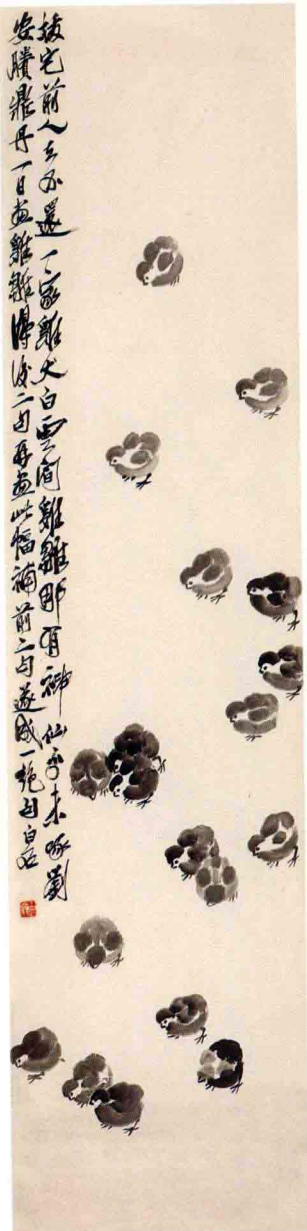 拔宅前人去不還一家雞犬白雲間雞雛那有神仙分未啄劉
安賸鼎丹一日畫雞雛得後二句再畫此幅補前二句遂成一絕句白石